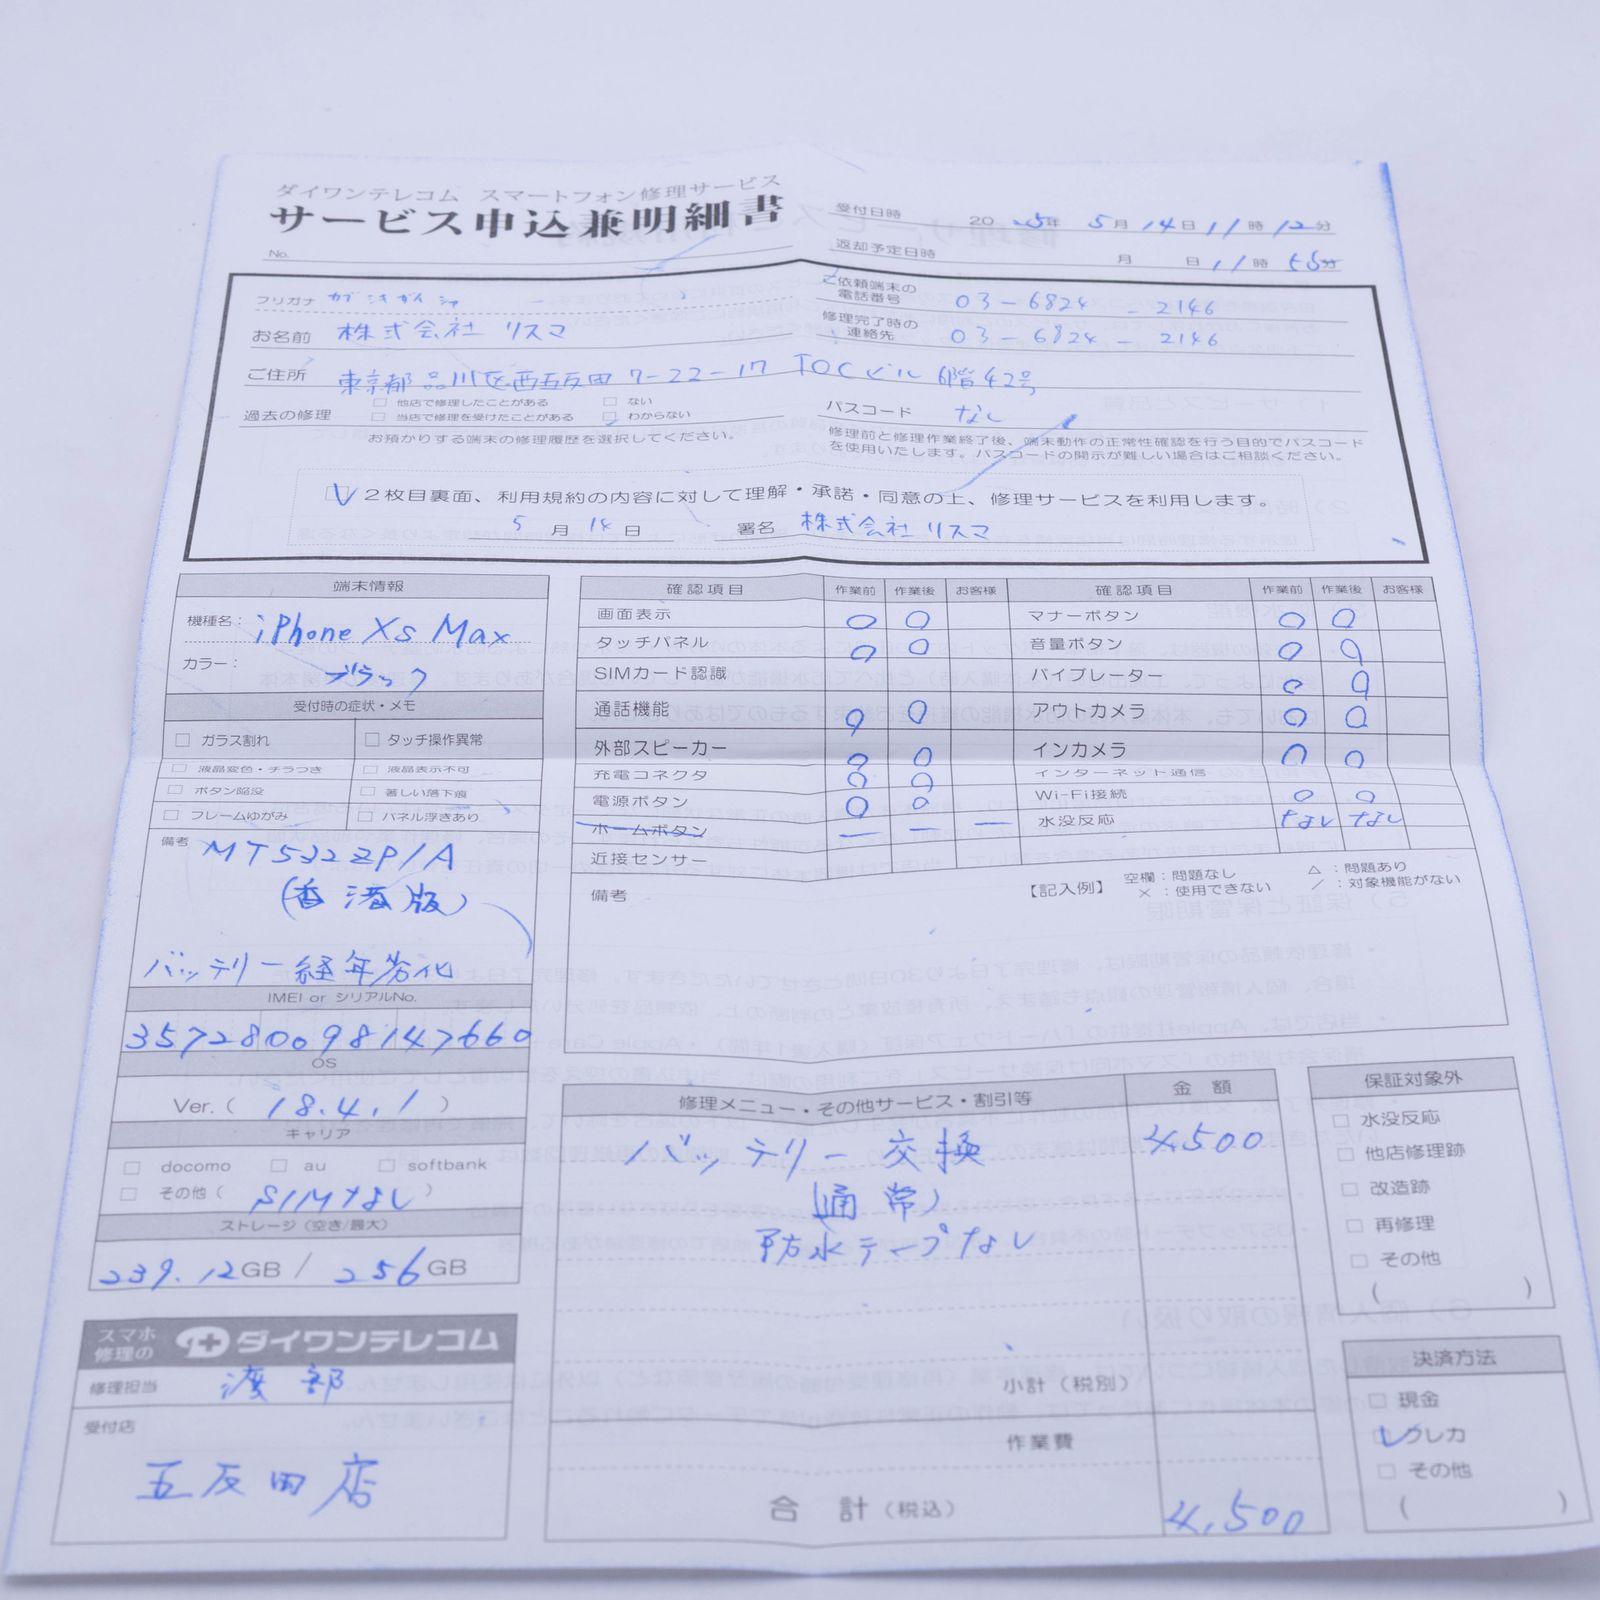 ダイワンテレコム スマートフォン修理サービス
サービス申込兼明細書
No.
受付日時 2025年 5月 14日 11時 12分
返却予定日時 月 日 11時 55分
フリガナ カブシキガイシャ
お名前 株式会社 リスマ
ご依頼端末の電話番号 03-6824-2146
修理完了時の連絡先 03-6824-2146
ご住所 東京都品川区西五反田 7-22-17 TOCビル 6階42号
過去の修理 □ 他店で修理したことがある □ ない
□ 当店で修理を受けたことがある □ わからない
お預かりする端末の修理履歴を選択してください。
パスコード なし
修理前と修理作業終了後、端末動作の正常性確認を行う目的でパスコード
を使用いたします。パスコードの開示が難しい場合はご相談ください。
☑ 2枚目裏面、利用規約の内容に対して理解・承諾・同意の上、修理サービスを利用します。
5月 14日 署名 株式会社 リスマ
端末情報
機種名: iPhone Xs Max
カラー: ブラック
受付時の症状・メモ
□ ガラス割れ □ タッチ操作異常
□ 液晶変色・チラつき □ 液晶表示不可
□ ボタン陥没 □ 著しい落下痕
□ フレームゆがみ □ パネル浮きあり
備考 MT532ZP/A
(香港版)
バッテリー経年劣化
IMEI or シリアルNo.
357280098147660
OS
Ver. ( 18.4.1 )
キャリア
□ docomo □ au □ softbank
□ その他 ( SIMなし )
ストレージ (空き/最大)
239.12GB / 256GB
スマホ修理の ダイワンテレコム
修理担当 渡部
受付店
五反田店
確認項目 作業前 作業後 お客様
画面表示 ○ ○
タッチパネル ○ ○
SIMカード認識
通話機能 ○ ○
外部スピーカー ○ ○
充電コネクタ ○ ○
電源ボタン ○ ○
ホームボタン — — —
近接センサー
確認項目 作業前 作業後 お客様
マナーボタン ○ ○
音量ボタン ○ ○
バイブレーター ○ ○
アウトカメラ ○ ○
インカメラ ○ ○
インターネット通信
Wi-Fi接続 ○ ○
水没反応 なし なし
備考
【記入例】 空欄:問題なし △:問題あり
×:使用できない /:対象機能がない
修理メニュー・その他サービス・割引等 金額
バッテリー交換 4,500
(通常)
防水テープなし
小計(税別)
作業費
合計(税込) 4,500
保証対象外
□ 水没反応
□ 他店修理跡
□ 改造跡
□ 再修理
□ その他
( )
決済方法
□ 現金
☑ クレカ
□ その他
( )